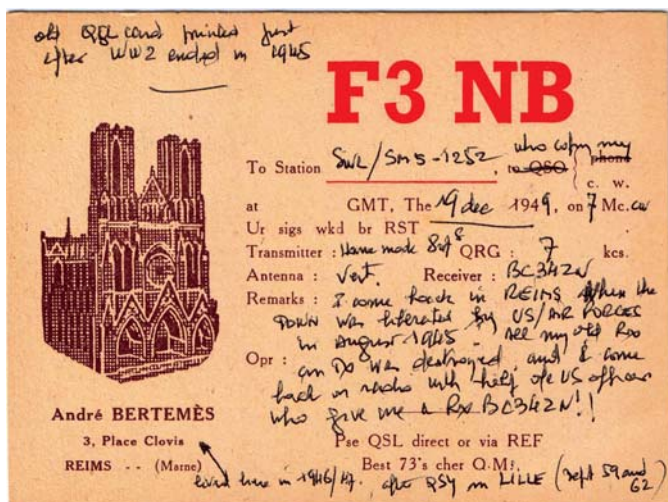 old QSL card printed just
after WW2 ended in 1945
F3 NB
To Station SWL/SM5-1252, to QSO who copy my phone
c. w.
at GMT, The 19 dec 1949, on 7 Mc. cw
Ur sigs wkd br RST
Transmitter : Home made QRG : 7 kcs.
Antenna : Vert. Receiver : BC342N
Remarks : I come back in REIMS when the
town was liberated by US/AIR FORCES
in August 1945. All my old Rx
Opr : an Tx was destroyed and I come
back on radio with help of US officer
who give me a Rx BC342N!!
André BERTEMÈS
3, Place Clovis
REIMS -- (Marne)
Pse QSL direct or via REF
Best 73's cher O.M.
lived here in 1946/47. after QSY in LILLE (sept 59 and
62)